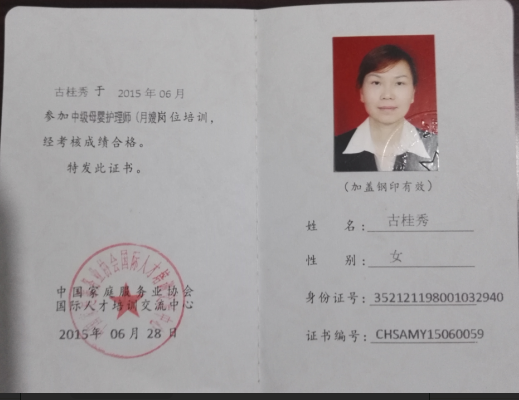 古桂秀 于 2015 年 06 月
参加 中级母婴护理师（月嫂岗 位培训，
经考核成绩合格。
特发此证书。
中国家庭服务业协会
国际人才培训交流中心
2015 年 06 月 28 日
（加盖钢印有效）
姓 名：古桂秀
性 别：女
身份证号：352121198001032940
证书编号：CHSAMY15060059